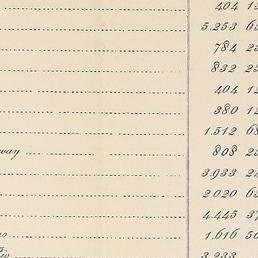 404 12
5.253 6
784 2
832 2
404 12
380 12
1.512 68
way 808 2
3.933 2
2020 6
4.445 37
1.616 5
3.233